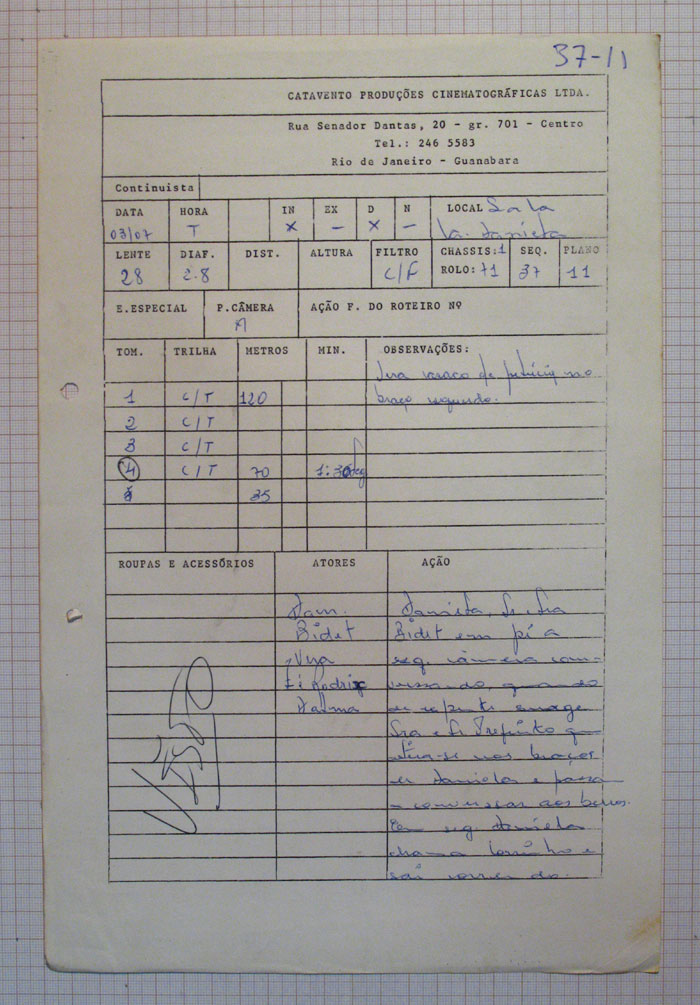 37-11
CATAVENTO PRODUÇÕES CINEMATOGRÁFICAS LTDA.
Rua Senador Dantas, 20 - gr. 701 - Centro
Tel.: 246 5583
Rio de Janeiro - Guanabara
Continuista
DATA HORA IN EX D N LOCAL Sala
03/07 T x - x -
LENTE DIAF. DIST. ALTURA FILTRO CHASSIS:1 SEQ. PLANO
28 2.8 C/F ROLO: 71 37 11
E.ESPECIAL P.CÂMERA AÇÃO F. DO ROTEIRO Nº
M
TOM. TRILHA METROS MIN. OBSERVAÇÕES:
1 C/T 120 braço esquerdo.
2 C/T
3 C/T
4 C/T 70
5 35
ROUPAS E ACESSÓRIOS ATORES AÇÃO
Dani. Daniela, Sr. Sra
Bidet Bidet em pé a
Vera seg. câmera con-
versando, quando
Dalma de repente surge
Sra e Sr Prefeito que
atira-se nos braços
de Daniela e passa
a conversar aos berros.
Em seg Daniela
chama e
sai correndo.
VISTO